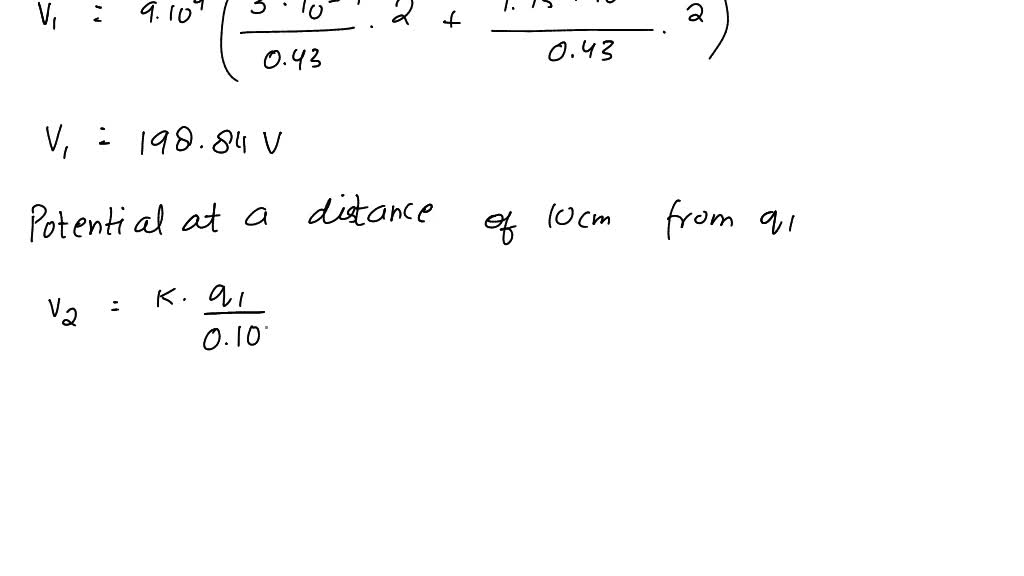 V₁ = 9.10⁹ ( 3 · 10 / 0.43 . 2 + / 0.43 . 2 )
V₁ = 198.84 V
Potential at a distance of 10cm from q₁
V₂ = K. q₁ / 0.10